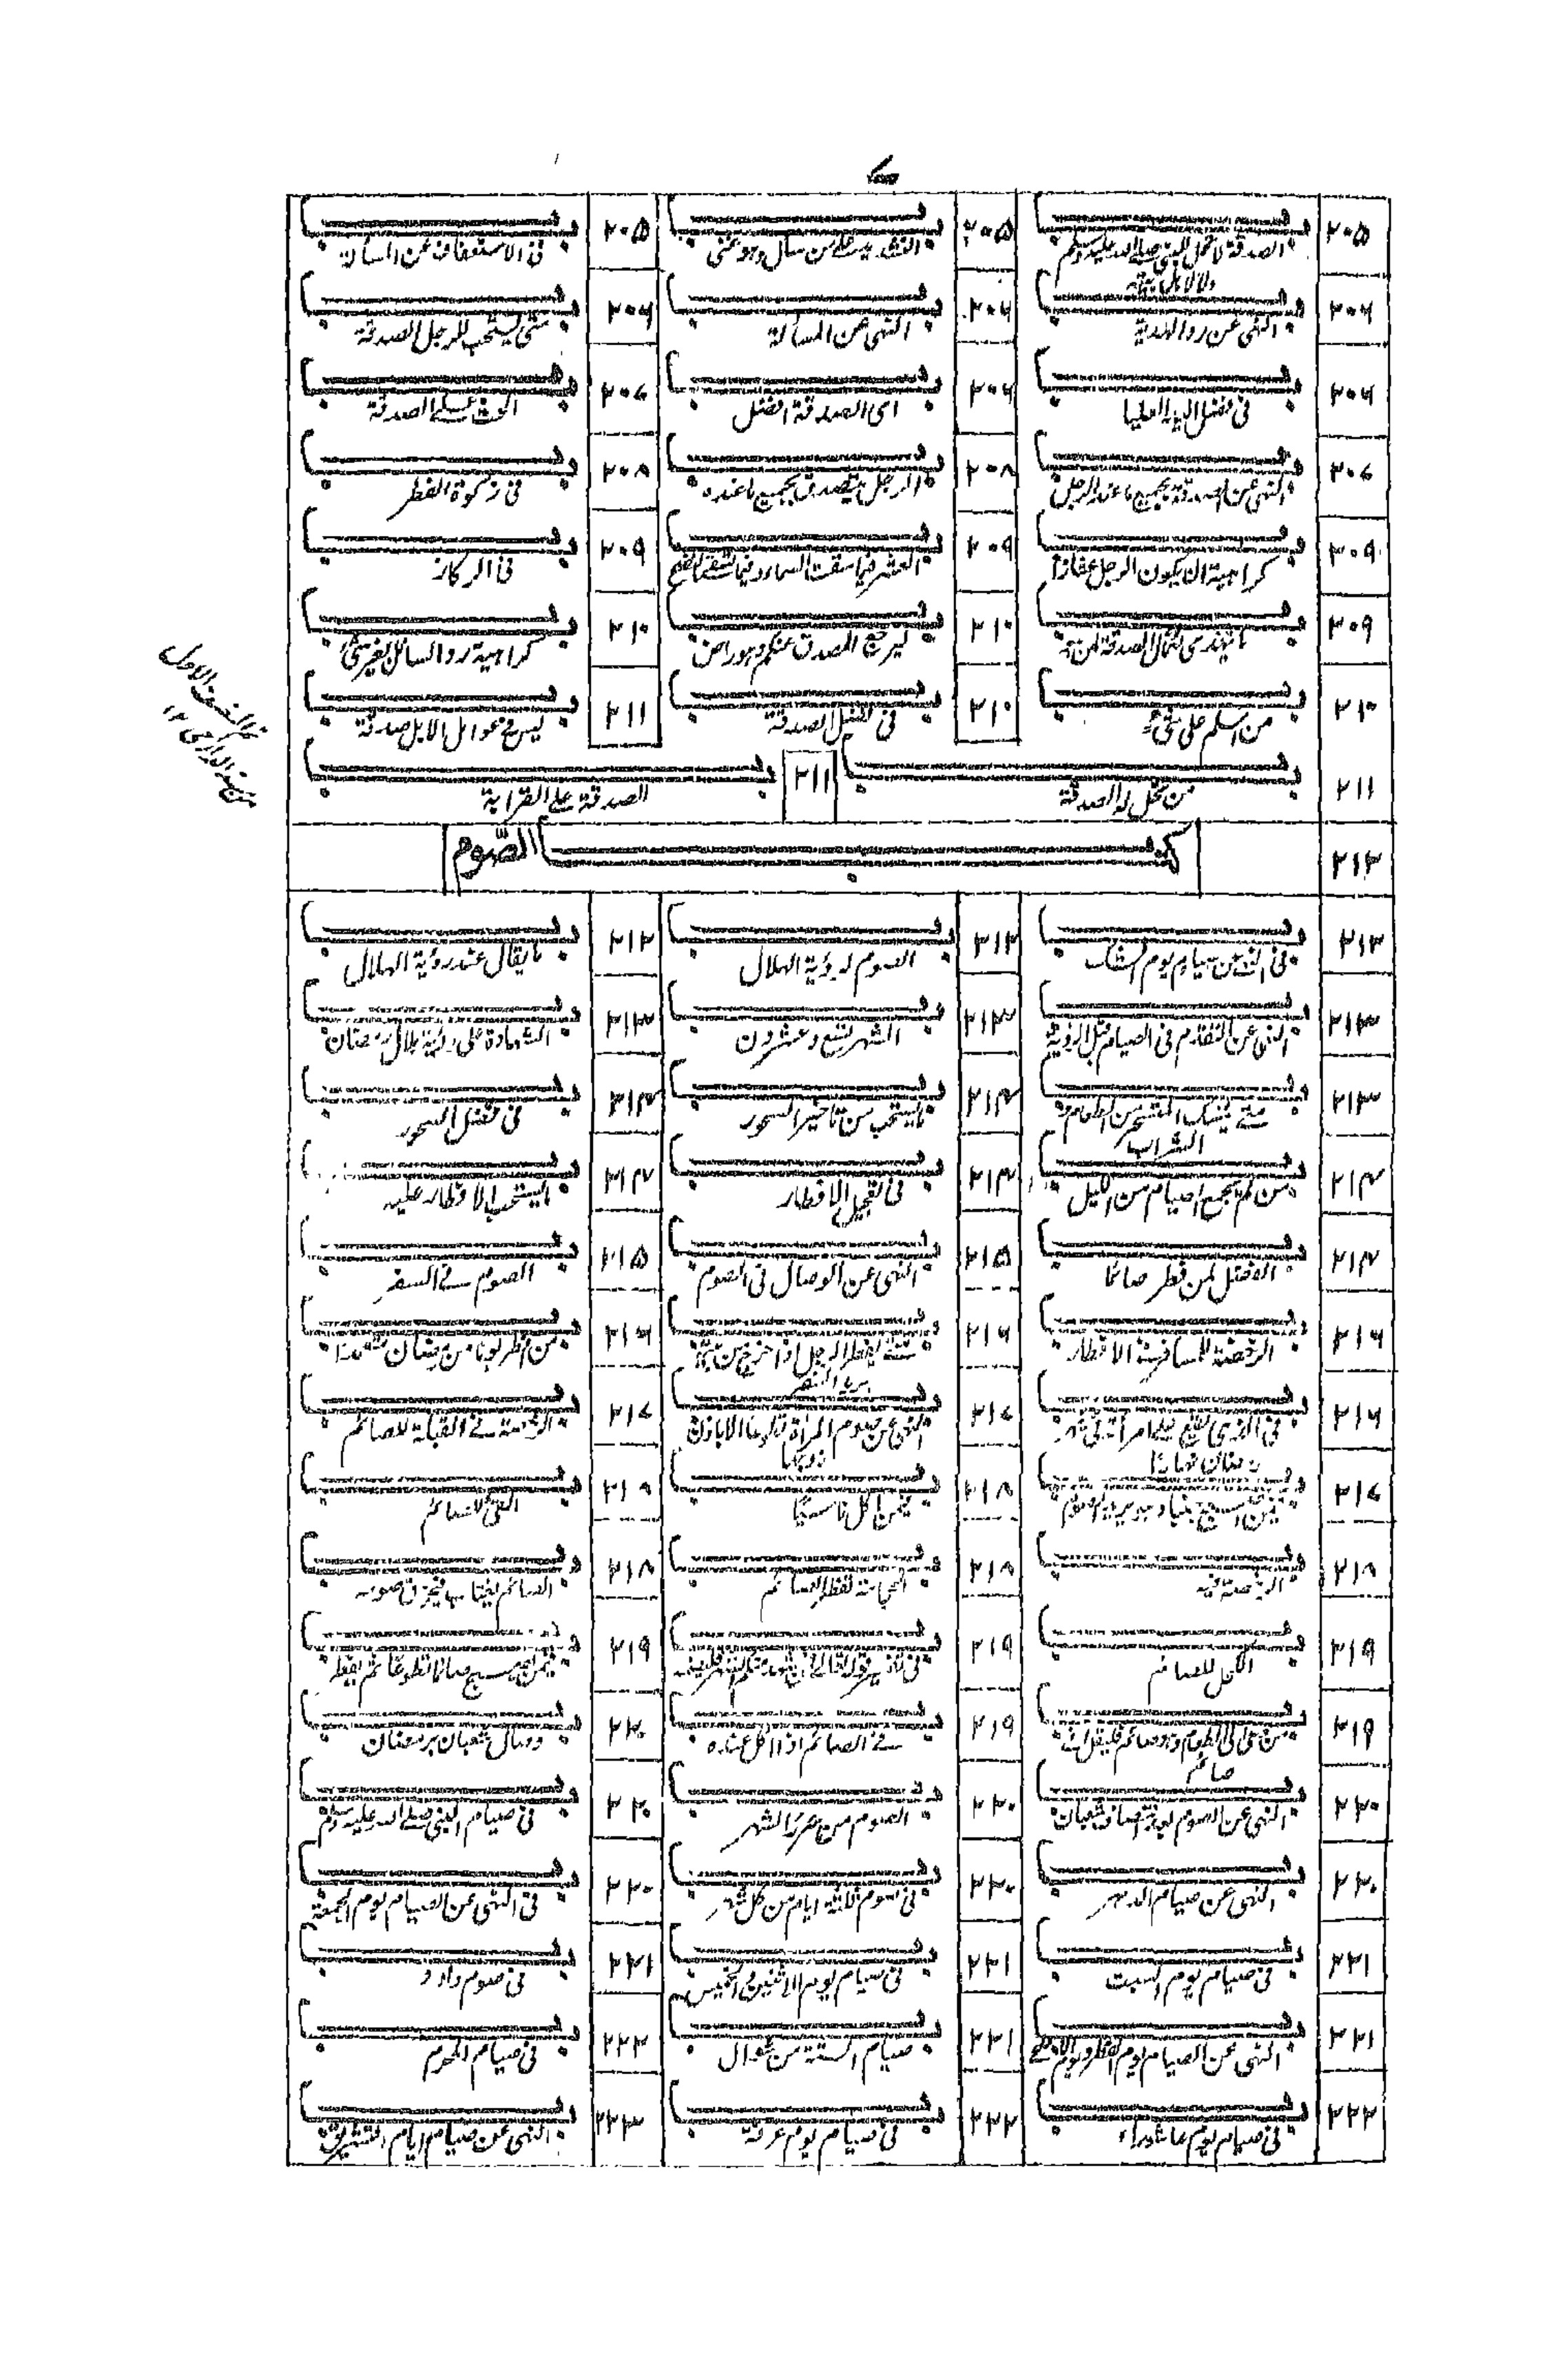 ٢٠٥ باب الصدقة لا تحل للنبي صلى الله عليه وسلم ولا لاهل بيته ٢٠٥ باب التشديد على من سأل وهو غنى ٢٠٥ باب فى الاستعفاف عن المسألة
٢٠٦ باب النهى عن رد الهدية ٢٠٦ باب النهى عن المسألة ٢٠٦ باب متى يستحب للرجل الصدقة
٢٠٦ باب فى فضل اليد العليا ٢٠٦ باب اى الصدقة افضل ٢٠٧ باب الحث على الصدقة
٢٠٧ باب النهى عن الصدقة بجميع ما عند الرجل ٢٠٨ باب الرجل يتصدق بجميع ما عنده ٢٠٨ باب فى زكوة الفطر
٢٠٩ باب كراهية ان يكون الرجل عشارا ٢٠٩ باب العشر فيما سقت السماء وفيما سقى بالنضح ٢٠٩ باب فى الركاز
٢٠٩ باب ما يهدى لعمال الصدقة لمن هو ٢١٠ باب ليرجع المصدق عنكم وهو راض ٢١٠ باب كراهية رد السائل بغير شئ
٢١٠ باب من اسلم على شئ ٢١٠ باب فى فضل الصدقة ٢١١ باب ليس فى عوامل الابل صدقة
٢١١ باب من تحل له الصدقة ٢١١ باب الصدقة على القرابة
٢١٢ كتاب الصّوم
٢١٢ باب فى النهى عن صيام يوم الشك ٢١٢ باب الصوم لرؤية الهلال ٢١٢ باب ما يقال عند رؤية الهلال
٢١٣ باب النهى عن التقدم فى الصيام قبل الرؤية ٢١٣ باب الشهر تسع وعشرون ٢١٣ باب الشهادة على رؤية هلال رمضان
٢١٣ باب متى يمسك المتسحر من الطعام و الشراب ٢١٤ باب ما يستحب من تاخير السحور ٢١٤ باب فى فضل السحور
٢١٤ باب من لم يجمع الصيام من الليل ٢١٤ باب فى تعجيل الافطار ٢١٤ باب ما يستحب الافطار عليه
٢١٤ باب الفضل لمن فطر صائما ٢١٥ باب النهى عن الوصال فى الصوم ٢١٥ باب الصوم فى السفر
٢١٦ باب الرخصة للمسافر فى الافطار ٢١٦ باب متى يفطر الرجل اذا خرج من بيته يريد السفر ٢١٦ باب من افطر يوما من رمضان متعمدا
٢١٦ باب فى الذى يقع على امرأته فى شهر رمضان نهارا ٢١٧ باب النهى عن صوم المرأة تطوعا الا باذن زوجها ٢١٧ باب الرخصة فى القبلة للصائم
٢١٧ باب فيمن اصبح جنبا وهو يريد الصوم ٢١٨ باب فيمن اكل ناسيا ٢١٨ باب القئ للصائم
٢١٨ باب الرخصة فيه ٢١٨ باب الحجامة تفطر الصائم ٢١٨ باب الصائم يغتاب فيخرق صومه
٢١٩ باب الكحل للصائم ٢١٩ باب فى تفسير قوله تعالى فمن شهد منكم الشهر فليصمه ٢١٩ باب فيمن اصبح صائما تطوعا ثم يفطر
٢١٩ باب من دعى الى الطعام وهو صائم فليقل انى صائم ٢١٩ باب فى الصائم اذا اكل عنده ٢٢٠ باب وصال شعبان برمضان
٢٢٠ باب النهى عن الصوم بعد انتصاف شعبان ٢٢٠ باب الصوم من سرر الشهر ٢٢٠ باب فى صيام النبى صلى الله عليه وسلم
٢٢٠ باب النهى عن صيام الدهر ٢٢٠ باب فى صوم ثلثة ايام من كل شهر ٢٢٠ باب فى النهى عن الصيام يوم الجمعة
٢٢١ باب فى صيام يوم السبت ٢٢١ باب فى صيام يوم الاثنين والخميس ٢٢١ باب فى صوم داود
٢٢١ باب النهى عن الصيام يوم الفطر ويوم الاضحى ٢٢١ باب صيام الستة من شوال ٢٢٢ باب فى صيام المحرم
٢٢٢ باب فى صيام يوم عاشوراء ٢٢٢ باب فى صيام يوم عرفة ٢٢٣ باب النهى عن صيام ايام التشريق
النصف الاول
من الدارمى ١٢